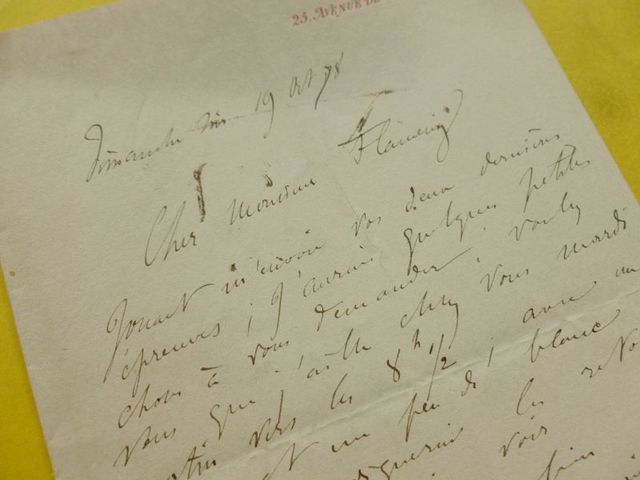 25, AVENUE DE
Dimanche soir 19 Oct 78
Cher Monsieur Flameng
Jouaust m'envoie vos deux dernières
épreuves ; j'aurais quelques petites
choses à vous demander. voulez
vous que j'aille chez vous mardi
matin vers les 8h 1/2 avec un
et un peu de blanc
les
voir